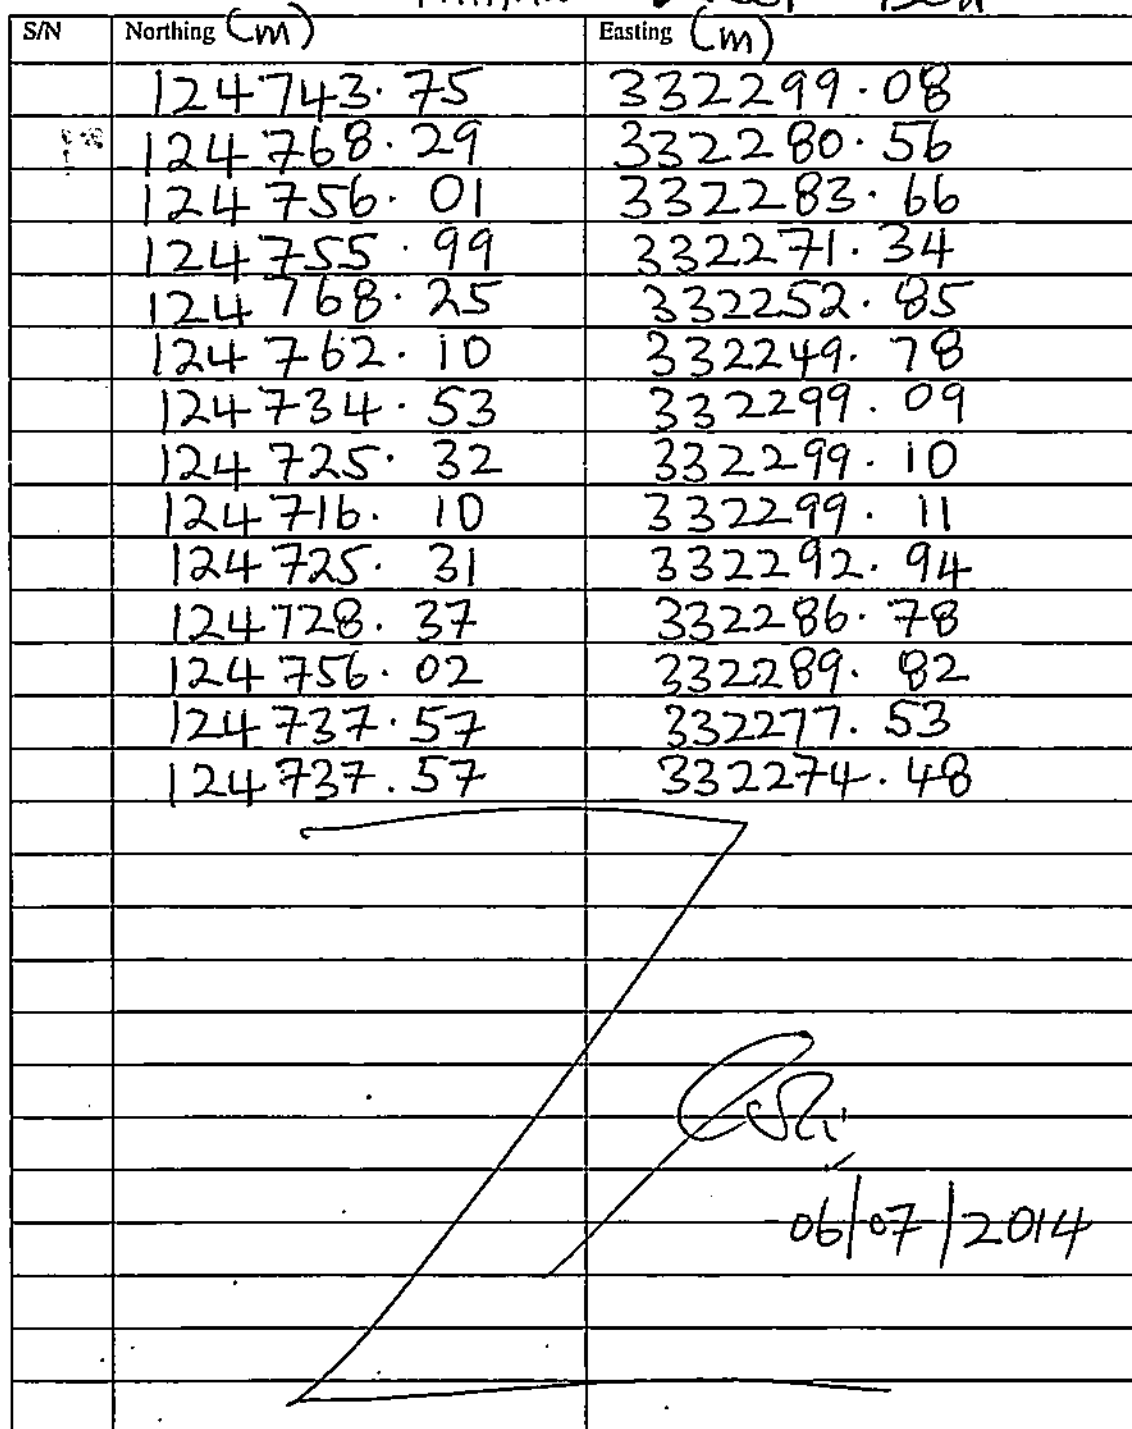 S/N Northing (m) Easting (m)
124743.75 332299.08
124768.29 332280.56
124756.01 332283.66
124755.99 332271.34
124768.25 332252.85
124762.10 332249.78
124734.53 332299.09
124725.32 332299.10
124716.10 332299.11
124725.31 332292.94
124728.37 332286.78
124756.02 332289.82
124737.57 332277.53
124737.57 332274.48
06/07/2014